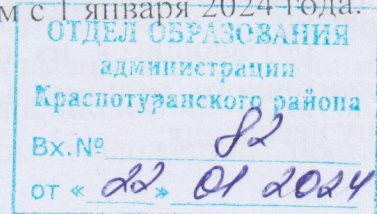 м с 1 января 2024 года.
ОТДЕЛ ОБРАЗОВАНИЯ
администрации
Краснотуранского района
Вх.№ 82
от « 22 » 01 2024